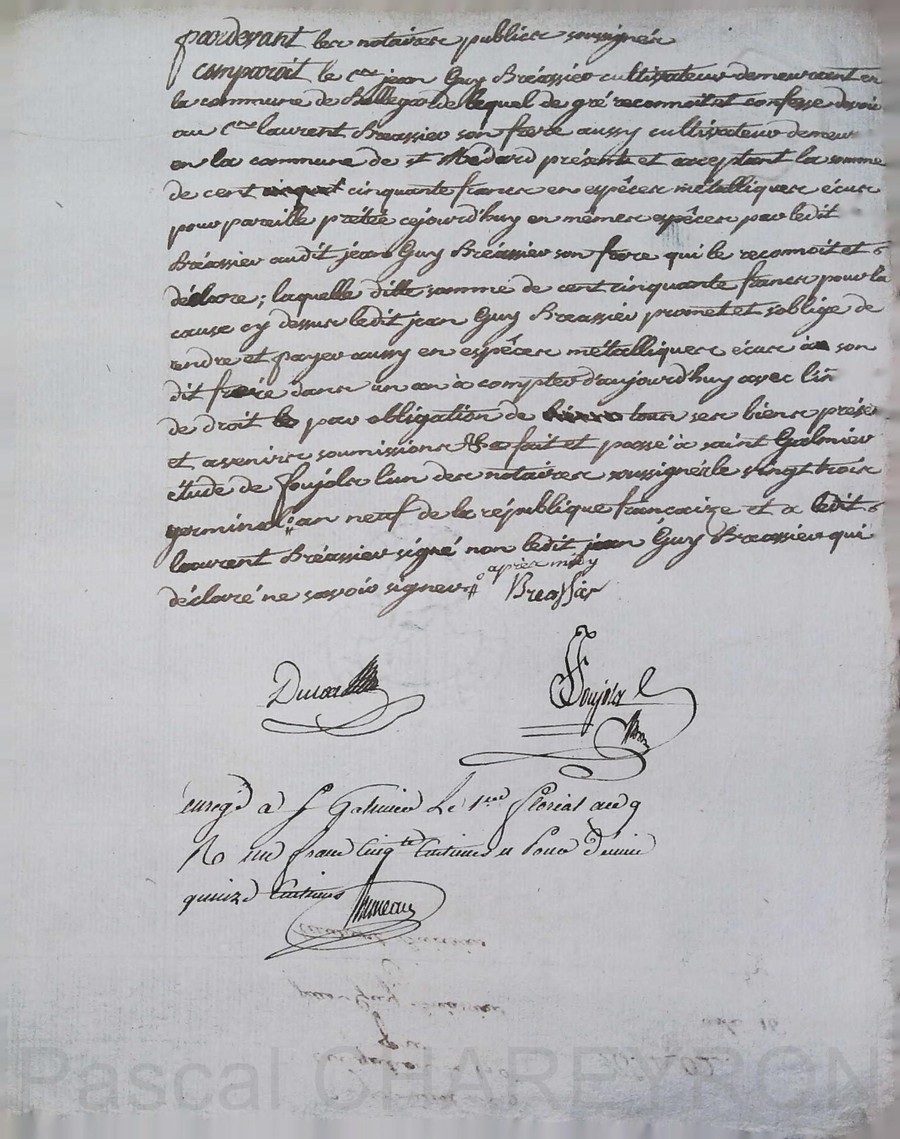 pardevant les notaires publics soussignés
comparoit le c.en jean Guy Bréassier cultivateur demeurant en
la commune de Bellegarde lequel de gré reconnoit et confesse devoir
au c.en laurent Bréassier son frère aussy cultivateur demeu
en la commune de st Médard présent et acceptant la somme
de cent cinquante francs en espèces métalliques écus
pour pareille prêtée cejourd'huy en mêmes espèces par ledit
Bréassier audit jean Guy Bréassier son frère qui le reconnoit et
déclare; laquelle ditte somme de cent cinquante francs pour la
cause cy dessus ledit jean Guy Breassier promet et soblige de
rendre et payer aussy en espèces métalliques écus à son
dit frère dans un an à compter d'aujourd'huy avec l'in
de droit par obligation de tous ses biens prése
et avenirs soumissions &a fait et passé à saint Galmier
étude de foujols l'un des notaires soussignés le vingt trois
germinal an neuf de la république francaize et a ledit
laurent Bréassier signé non ledit jean Guy Breassier qui
déclaré ne savoir signer après midy
Breassier
Foujols
enreg.é à St Galmier Le 1er floréal an 9
R un franc cinq.te Centimes et Pour
quinze Centimes
Pascal CHAREYRON